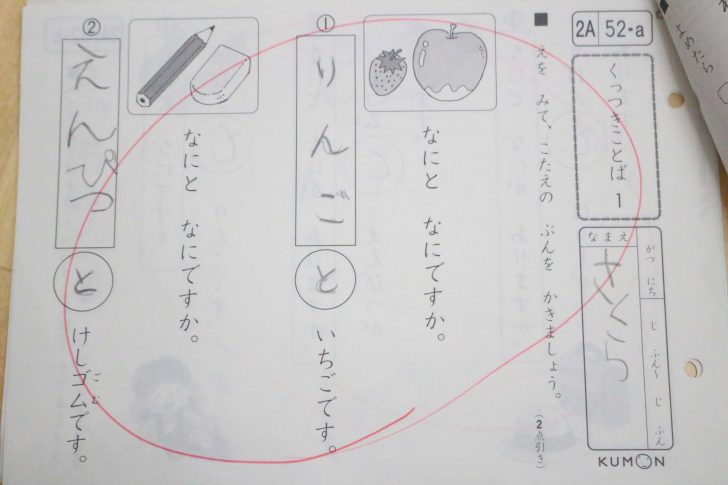 2A 52・a
くっつきことば 1
なまえ
さくら
がつ にち
じ ふん〜 じ ふん
KUMON
■ えを みて、こたえの ぶんを かきましょう。
(2点引き)
①
なにと なにですか。
りんご と いちごです。
②
なにと なにですか。
えんぴつ と けしゴムです。
ごむ